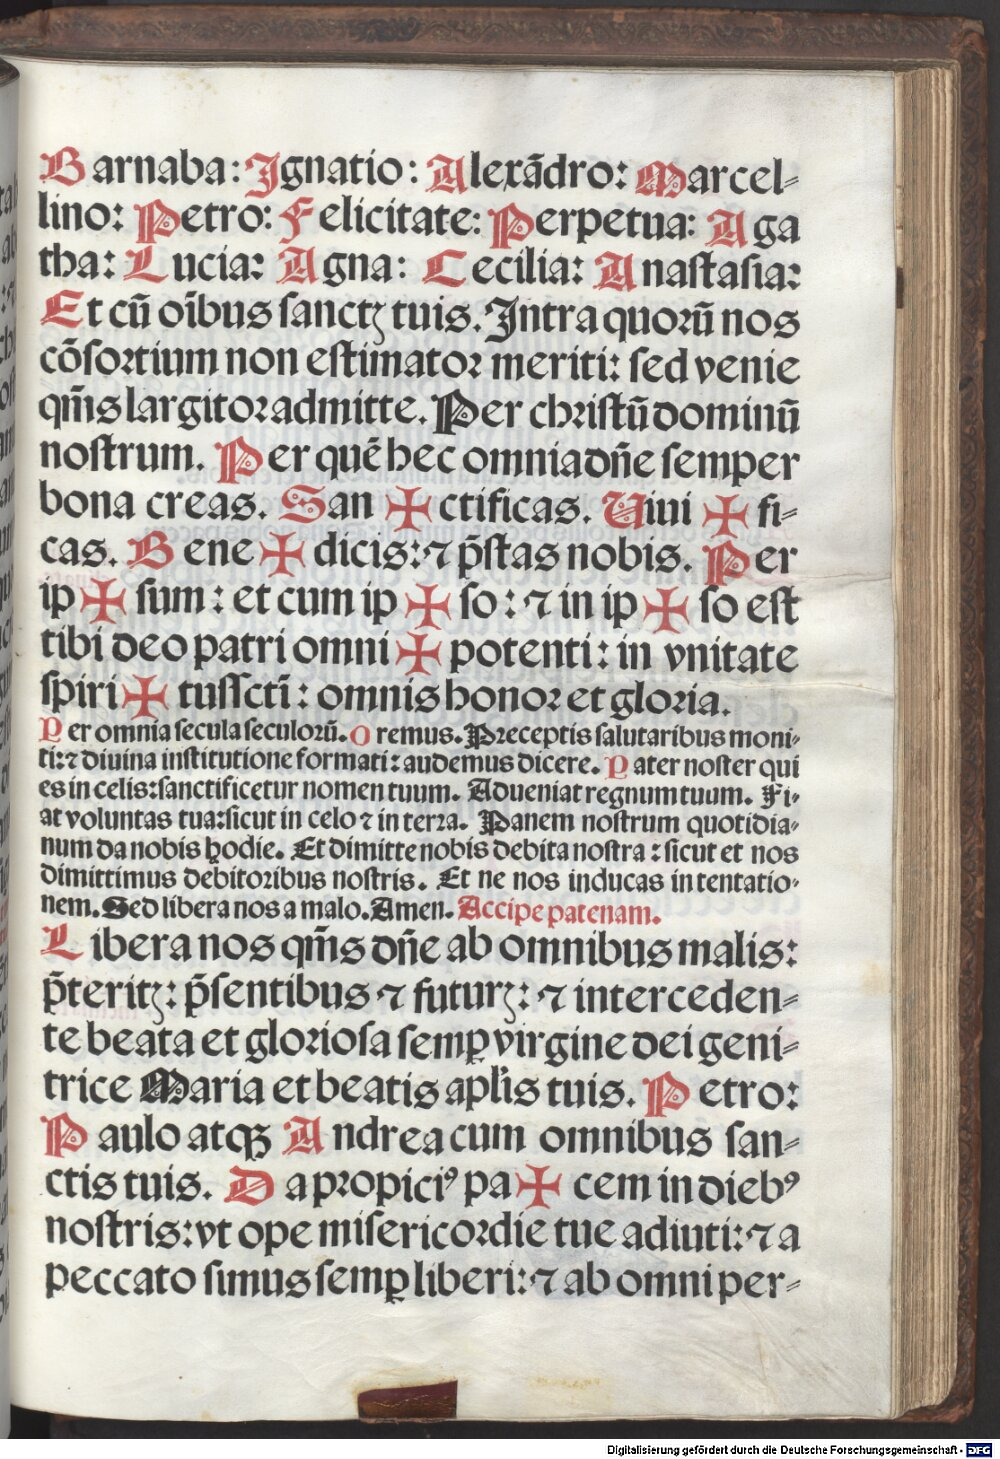 Barnaba: Ignatio: Alexãdro: Marcel⸗
lino: Petro: Felicitate: Perpetua: Aga
tha: Lucia: Agna: Cecilia: Anastasia:
Et cũ oĩbus sanctꝫ tuis. Intra quorũ nos
cõsortium non estimator meriti: sed venie
qm̃s largitor admitte. Per christũ dominũ
nostrum. Per quẽ hec omnia dñe semper
bona creas. San ✠ ctificas. Uiui ✠ fi⸗
cas. Bene ✠ dicis: ⁊ p̃stas nobis. Per
ip ✠ sum: et cum ip ✠ so: ⁊ in ip ✠ so est
tibi deo patri omni ✠ potenti: in vnitate
spiri ✠ tussctĩ: omnis honor et gloria.
Per omnia secula seculorũ. Oremus. Preceptis salutaribus moni⸗
ti: ⁊ diuina institutione formati: audemus dicere. Pater noster qui
es in celis: sanctificetur nomen tuum. Adueniat regnum tuum. Fi⸗
at voluntas tua: sicut in celo ⁊ in terra. Panem nostrum quotidia⸗
num da nobis hodie. Et dimitte nobis debita nostra: sicut et nos
dimittimus debitoribus nostris. Et ne nos inducas in tentatio⸗
nem. Sed libera nos a malo. Amen. Accipe patenam.
Libera nos qm̃s dñe ab omnibus malis:
p̃teritꝫ: p̃sentibus ⁊ futurꝫ: ⁊ interceden⸗
te beata et gloriosa semꝑ virgine dei geni⸗
trice Maria et beatis apl̃is tuis. Petro:
Paulo atqꝫ Andrea cum omnibus san⸗
ctis tuis. Da propiciꝰ pa ✠ cem in diebꝰ
nostris: vt ope misericordie tue adiuti: ⁊ a
peccato simus semꝑ liberi: ⁊ ab omni per⸗
Digitalisierung gefördert durch die Deutsche Forschungsgemeinschaft - DFG